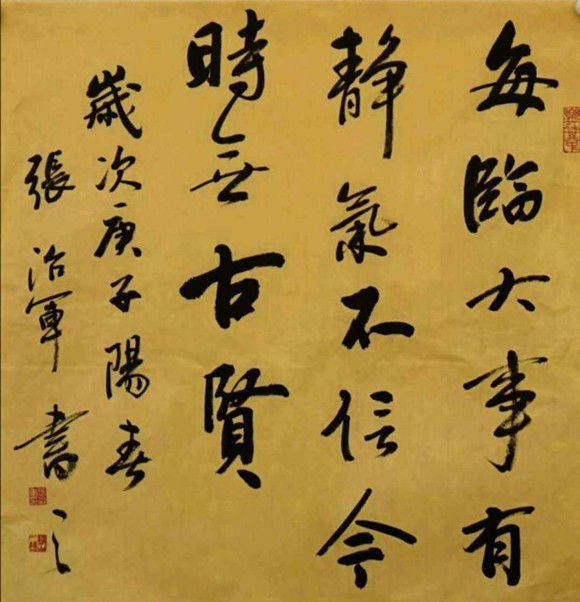 每臨大事有
靜氣不信今
時無古賢
歲次庚子陽春
張治軍書之